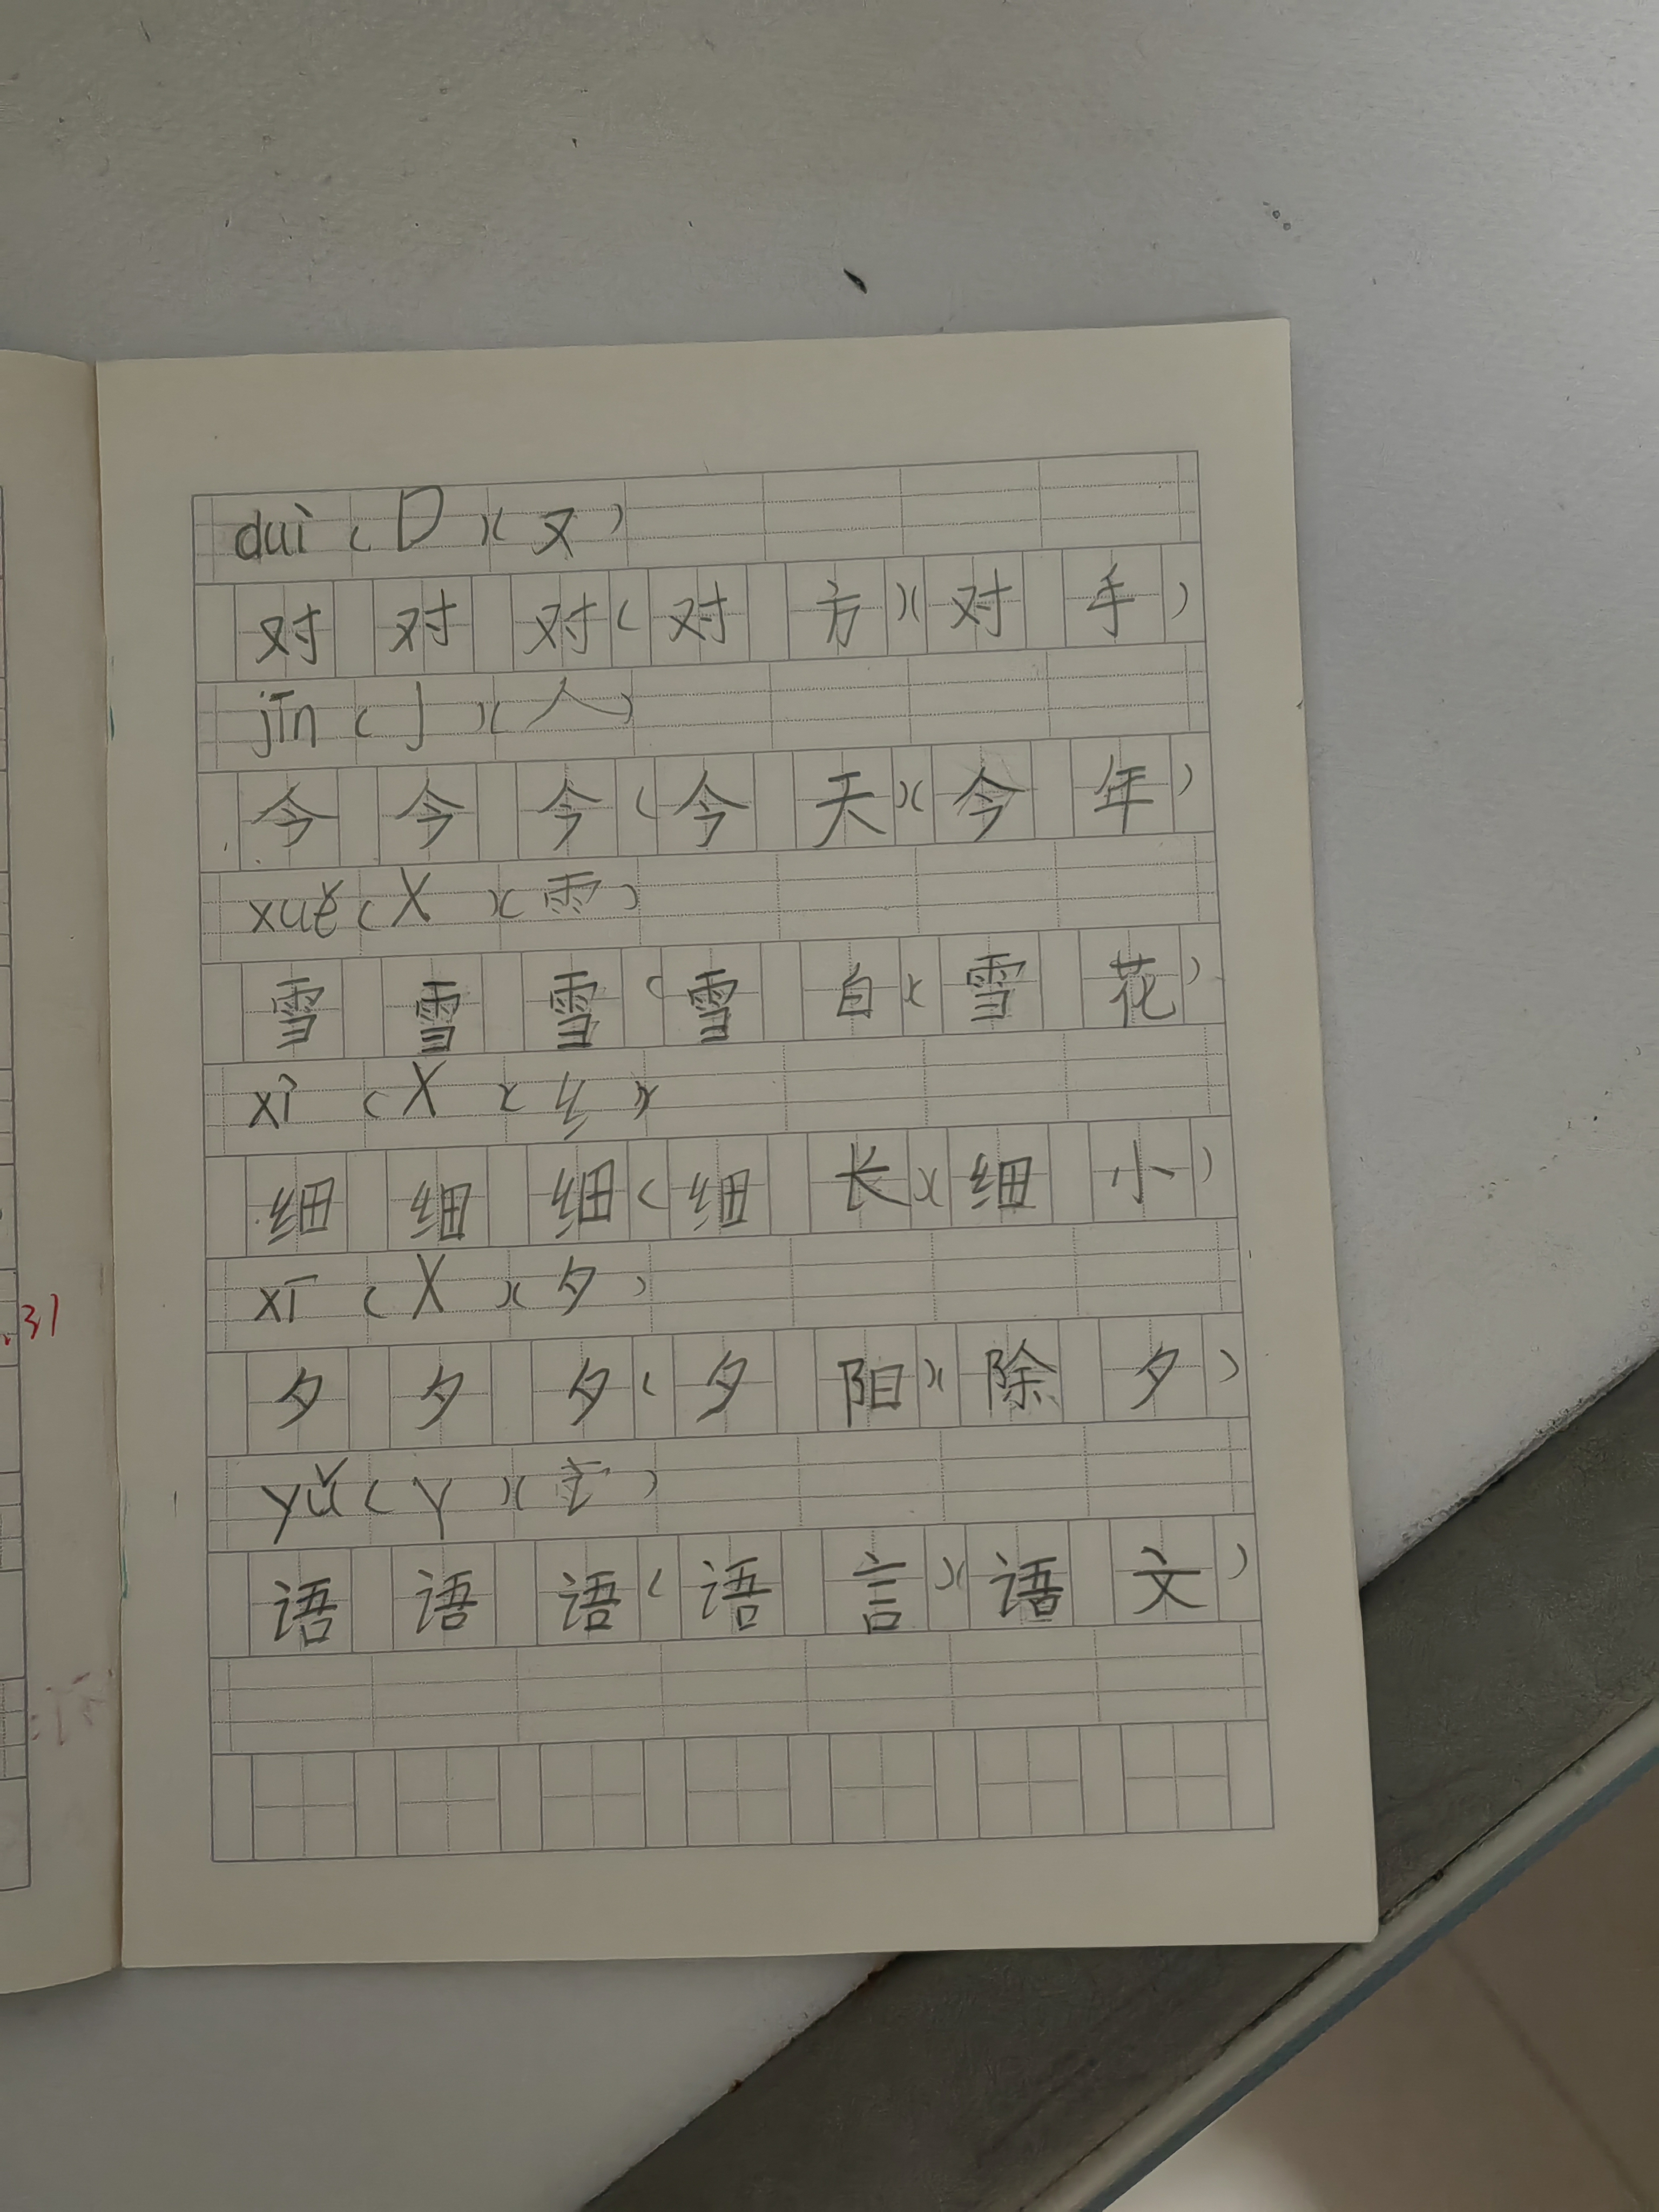 duì（D）（又）
对 对 对（对 方）（对 手）
jīn（J）（人）
今 今 今（今 天）（今 年）
xuě（X）（雨）
雪 雪 雪（雪 白）（雪 花）
xì（X）（纟）
细 细 细（细 长）（细 小）
xī（X）（夕）
夕 夕 夕（夕 阳）（除 夕）
yǔ（Y）（讠）
语 语 语（语 言）（语 文）
31